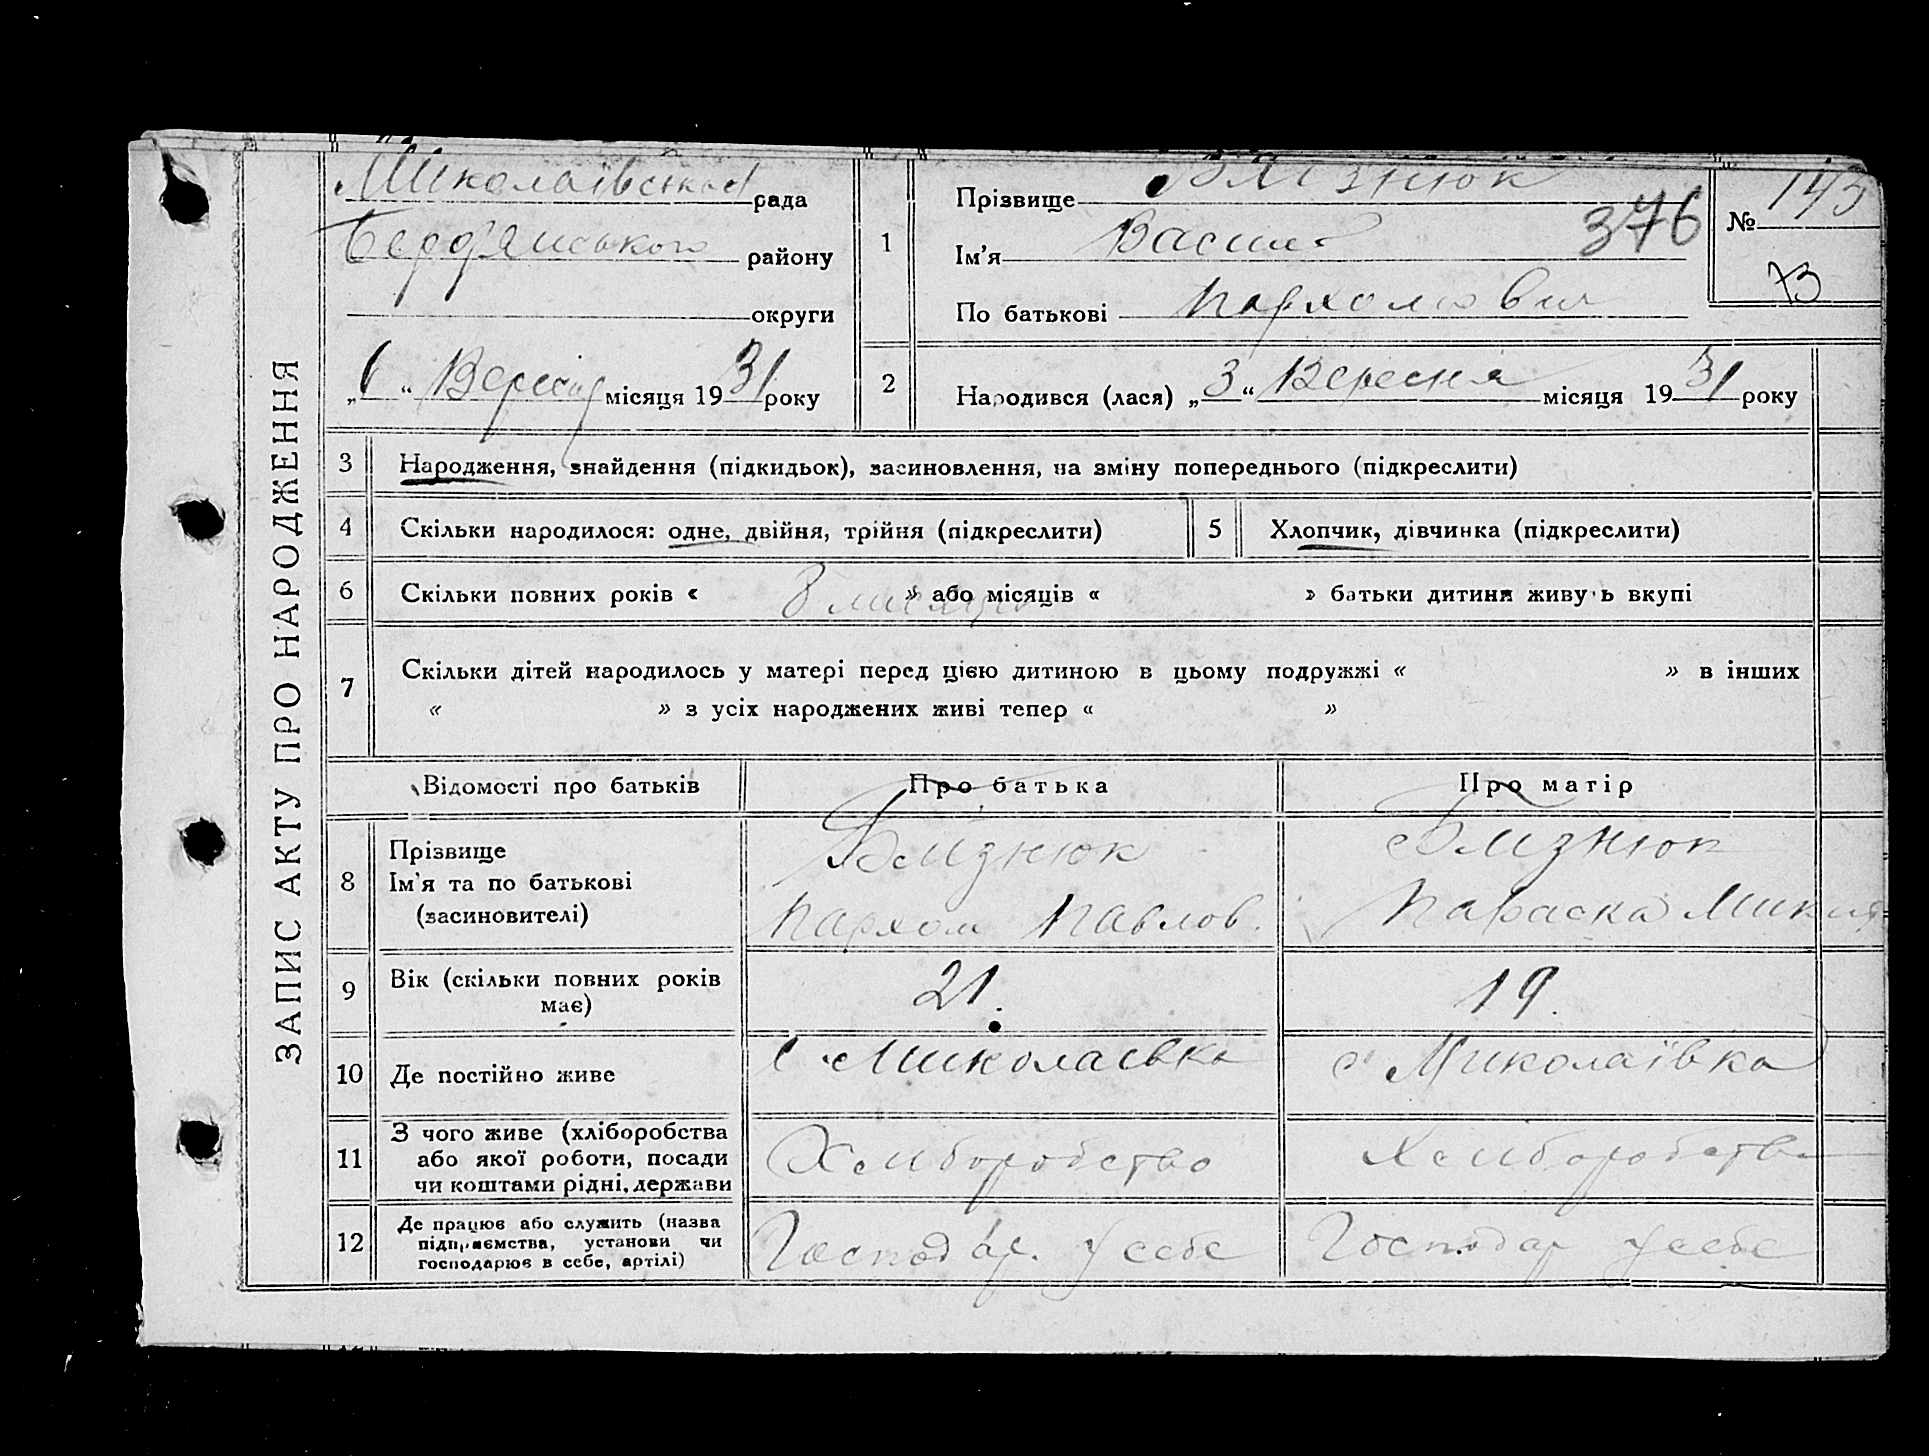 ЗАПИС АКТУ ПРО НАРОДЖЕННЯ
Миколаївська рада
Бердянського району
округи
„6“ Вересня місяця 1931 року
1
Прізвище Блізнюк
Ім'я Василь 376
По батькові Пархомович
№ 143
73
2
Народився (лася) „3“ Вересня місяця 1931 року
3 Народження, знайдення (підкидьок), засиновлення, на зміну попереднього (підкреслити)
4 Скільки народилося: одне, двійня, трійня (підкреслити)
5 Хлопчик, дівчинка (підкреслити)
6 Скільки повних років « 8 місяців » або місяців « » батьки дитини живуть вкупі
7 Скільки дітей народилось у матері перед цією дитиною в цьому подружжі « » в інших
« » з усіх народжених живі тепер « »
Відомості про батьків Про батька Про матір
8 Прізвище
Ім'я та по батькові
(засиновителі)
Блізнюк
Пархом Павлов.
Близнюк
Параска Микит
9 Вік (скільки повних років
має)
21. 19.
10 Де постійно живе с Миколаївка с Миколаївка
11 З чого живе (хліборобства
або якої роботи, посади
чи коштами рідні, держави
Хліборобство Хліборобство
12 Де працює або служить (назва
підприємства, установи чи
господарює в себе, артілі)
Господар. у себе Господар у себе